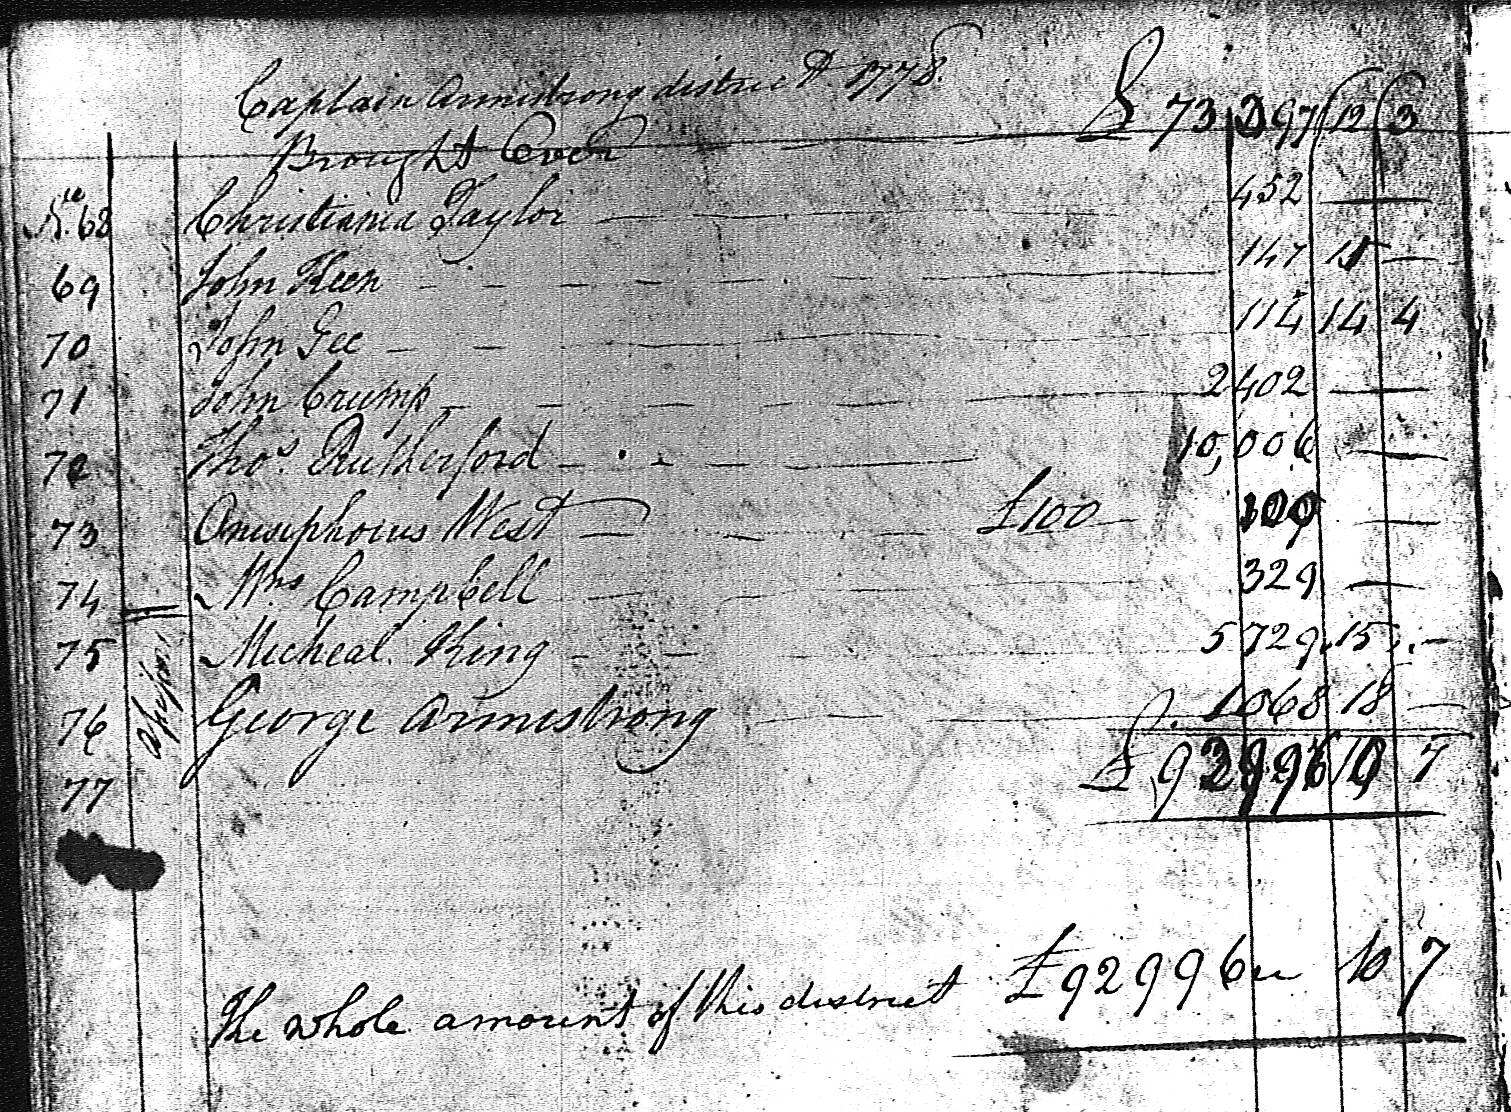 Captain Armstrong district 1778.
Brought Over £ 73 397 12 3
No. 68 Christiania Taylor 452
69 John Keen 147 15
70 John Gee 114 14 4
71 John Crump 2402
72 Thos. Rutherford 10,006
73 Onesiphorus West £100 100
74 Mrs Campbell 329
75 Micheal King 5729. 15
76 George Armstrong 1068 18
77 £ 92996 10 7
The whole amount of this district £92996 10 7